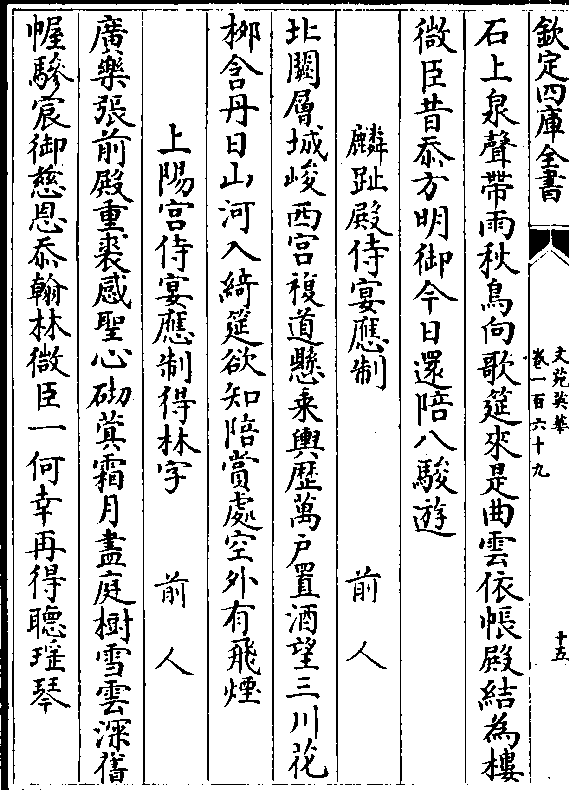 欽定四庫全書
文苑英華
卷一百六十九
十五
石上泉聲帶雨秋鳥向歌筵來是曲雲依帳殿結為樓
微臣昔忝方明御今日還陪八駿遊
麟趾殿侍宴應制 前人
北闕層城峻西宫複道懸乘輿歴萬户置酒望三川花
栁含丹日山河入綺筵欲知陪賞處空外有飛煙
上陽宫侍宴應制得林字 前人
廣樂張前殿重裘感聖心砌蓂霜月盡庭樹雪雲深舊
幄驂宸御慈恩忝翰林微臣一何幸再得聽瑶琴